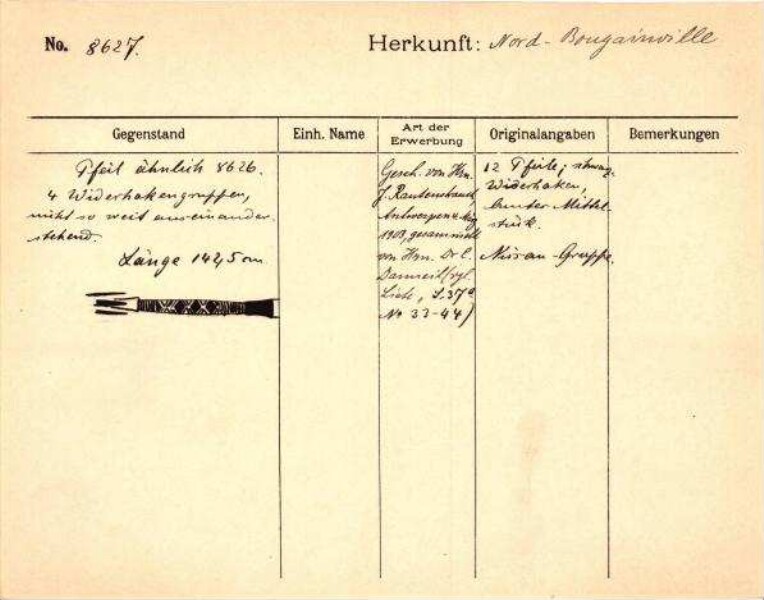 No. 8627.
Herkunft: Nord-Bougainville
Gegenstand
Einh. Name
Art der Erwerbung
Originalangaben
Bemerkungen
Pfeil ähnlich 8626.
4 Widerhakengruppen,
nicht so weit auseinander
stehend.
Länge 142,5 cm
Gesch. von Hrn.
J. Rautenstrauch
Antwerpen
1903, gesammelt
von Hrn. Dr
vgl.
Liste, S. 37
No 33-44)
12 Pfeile;
Widerhaken,
bunter Mittel-
stück.
Nissan-Gruppe.